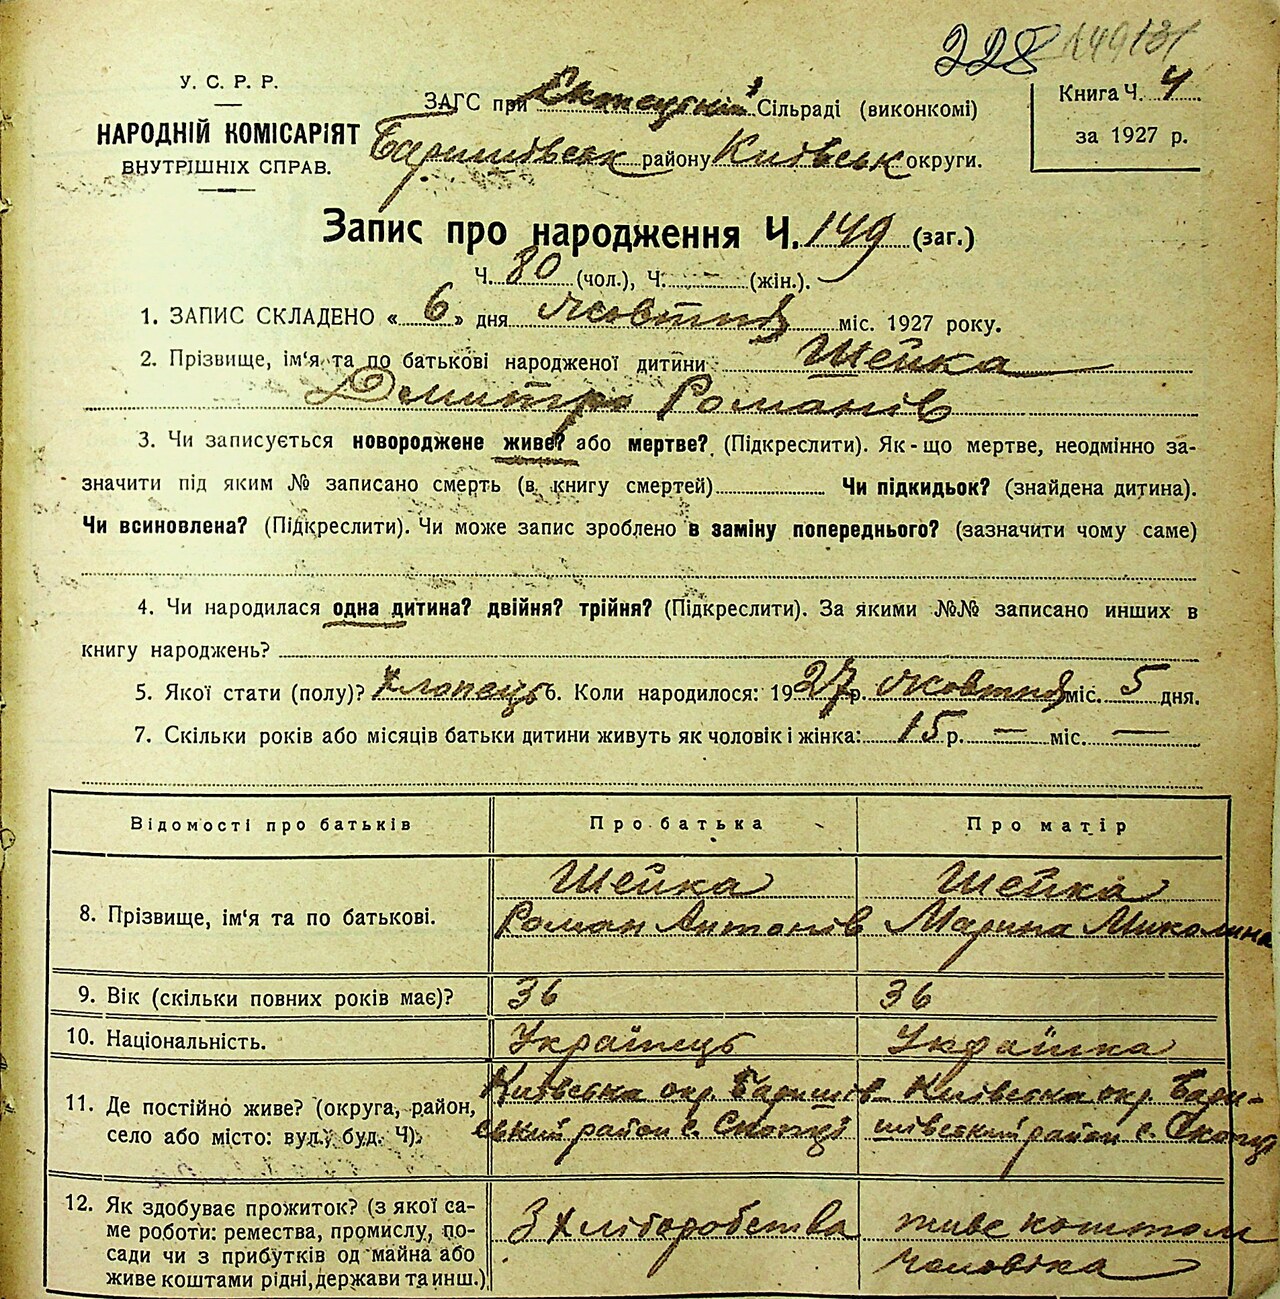 228 149 131
У. С. Р. Р.
НАРОДНІЙ КОМІСАРІЯТ
ВНУТРІШНІХ СПРАВ.
ЗАГС при Сільраді (виконкомі)
Баришівськ району Київськ округи.
Книга Ч. 4
за 1927 р.
Запис про народження Ч. 149 (заг.)
Ч. 80 (чол.), Ч. — (жін.).
1. ЗАПИС СКЛАДЕНО « 6 » дня жовтня міс. 1927 року.
2. Прізвище, ім'я та по батькові народженої дитини Шейка
Демитро Романів
3. Чи записується новороджене живе? або мертве? (Підкреслити). Як-що мертве, неодмінно за-
значити під яким № записано смерть (в книгу смертей) Чи підкидьок? (знайдена дитина).
Чи всиновлена? (Підкреслити). Чи може запис зроблено в заміну попереднього? (зазначити чому саме)
4. Чи народилася одна дитина? двійня? трійня? (Підкреслити). За якими №№ записано инших в
книгу народжень?
5. Якої стати (полу)? Хлопець 6. Коли народилося: 1927 р. жовтня міс. 5 дня.
7. Скільки років або місяців батьки дитини живуть як чоловік і жінка: 15 р. — міс. —
Відомості про батьків Про батька Про матір
8. Прізвище, ім'я та по батькові. Шейка Роман Антонів Шейка Марина Миколина
9. Вік (скільки повних років має)? 36 36
10. Національність. Українець Українка
11. Де постійно живе? (округа, район, Київська окр. Баришів- Київська окр. Бари-
село або місто: вул., буд. Ч). ський район с. Скопці шівський район с. Скопці
12. Як здобуває прожиток? (з якої са-
ме роботи: ремества, промислу, по- З хліборобства живе коштом
сади чи з прибутків од майна або чоловіка
живе коштами рідні, держави та инш.)